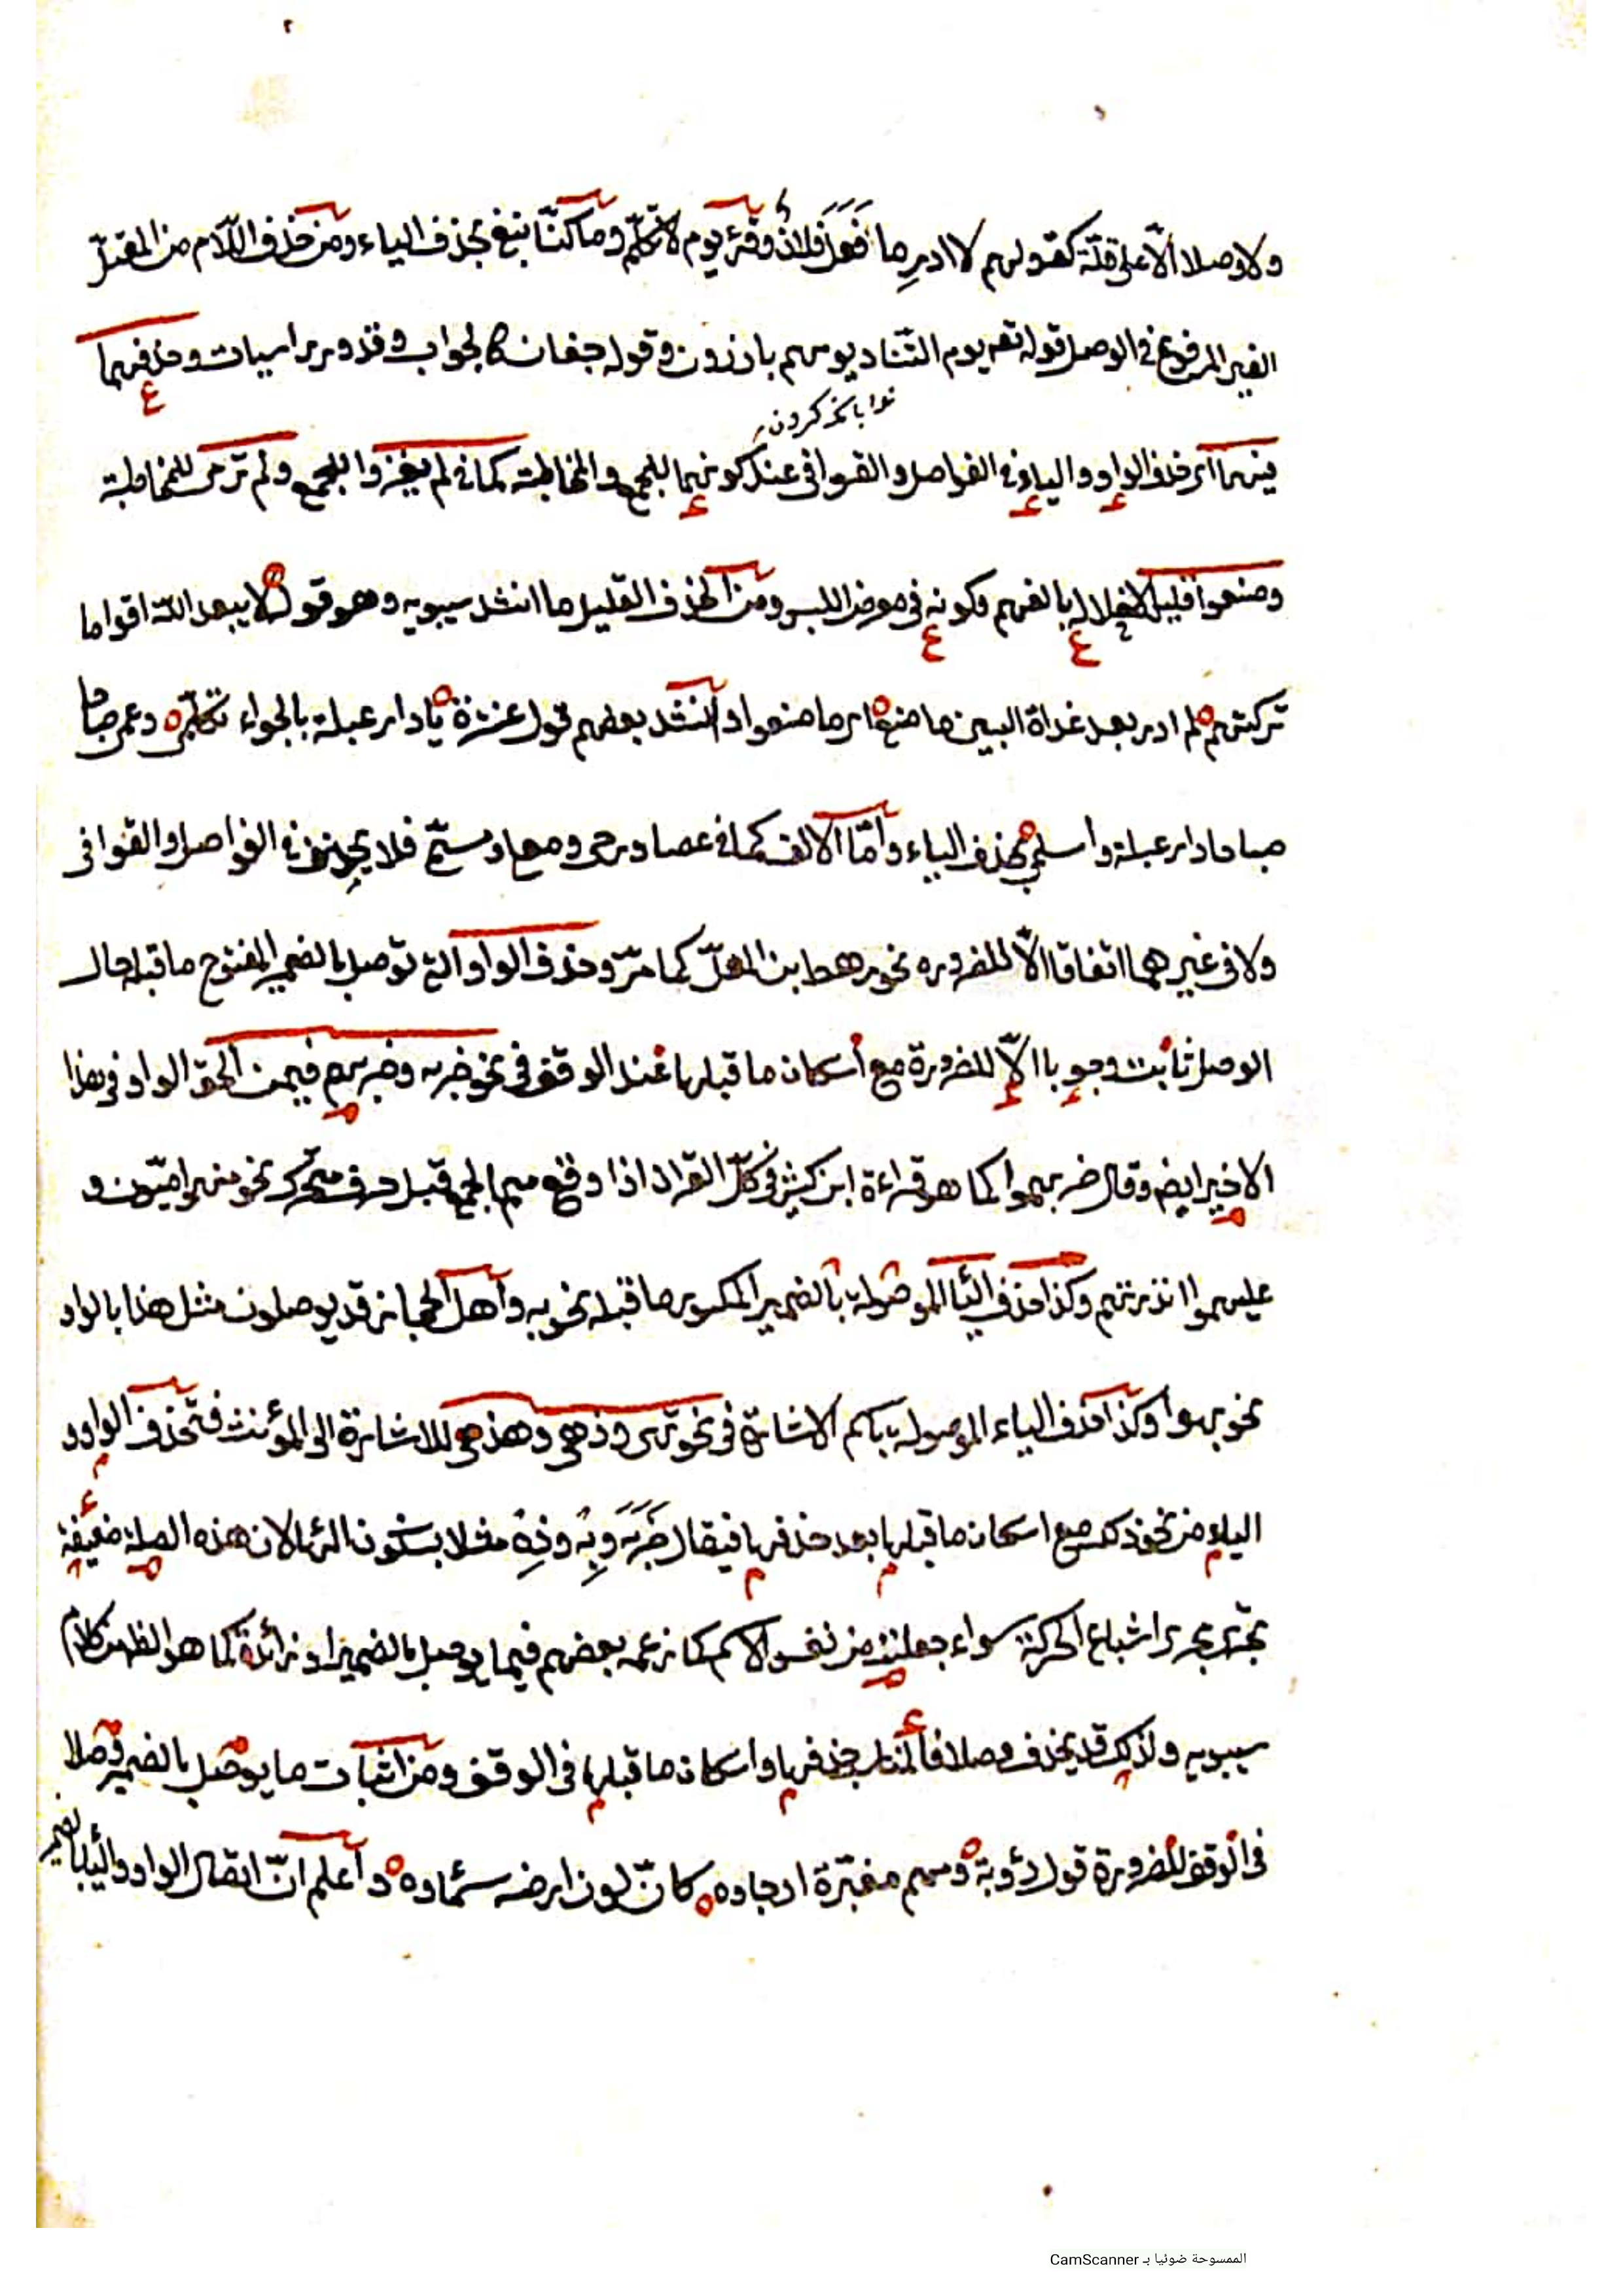 ولا وصلا الّا على قلّة كقولهم لا ادرِ ما فَعَلَ فلانٌ وقرئ يوم لا تكلّم وما كنّا نبغ بحذف الياء ومن حذف اللّام من المعتلّ
الغير المرفوع في الوصل قوله تعه يوم التّناد يوم هم بارزون وقوله جفان كالجواب وقدور راسيات وحذفهما
نوا بانكه كردن
فيهما اى حذف الواو والياء في الفواصل والقوافى عند كونهما للجمع والمخاطبة كما في لم يغزوا للجمع ولم ترمى للمخاطبة
وصنعوا قليل لاخلاله بالفهم وكونه في موضع اللبس ومن الحذف القليل ما انشد سيبويه وهو قول لا يبعد الله اقواما
تركتهم لم ادر بعد غداة البين ما صنع اى ما صنعوا وانشد بعضهم قول عنترة يا دار عبلة بالجواء تكلّمى وعمى صباحا
صباحا دار عبلة واسلم بحذف الياء وامّا الالف كما في عصا ورحى ومعلى ومسمّى فلا يحذف في الفواصل والقوافى
ولا في غيرهما اتفاقا الّا للضرورة نحو رهط ابن المعلّ كما مرّ وحذف الواو التى توصل بالضمير المفتوح ما قبله حال
الوصل ثابت وجوبا الّا للضرورة مع اسكان ما قبلها عند الوقف في نحو ضربه وضربهم فيمن الحق الواو في هذا
الاخير ايضه وقال ضربهموا كما هو قراءة ابن كثير في كلّ القرآن اذا وقع ميم الجمع قبل حرف متحرك نحو منهموا اميّون و
عليهموا ءانذرتهم وكذا حذف الياء الموصولة بالضمير المكسور ما قبله نحو به واهل الحجاز قد يوصلون مثل هذا بالواو
نحو بهوا وكذا حذف الياء الموصولة باسم الاشارة في نحو تهى وذهى وهذهى للاشارة الى المؤنث فتحذف الواو و
الياء من نحو ذلك مع اسكان ما قبلها بعد حذفها فيقال ضَرَبَهْ وبِهْ وذِهْ مثلا بسكون الهاء لان هذه الصلة ضعيفة
تجرى مجرى اشباع الحركة سواء جعلت من نفس الاسم كما زعمه بعضهم فيما يوصل بالضمير او زائدة كما هو الظاهر كلام
سيبويه ولذلك قد يحذف وصلا فالمناسب حذفها واسكان ما قبلها فى الوقف ومن اثبات ما يوصل بالضمير وصلا
فى الوقف للضرورة قول رؤبة ومهمه مغبّرة ارجاوه كانّ لون ارضه سماؤه واعلم انّ اتصال الواو والياء بالضمير
الممسوحة ضوئيا بـ CamScanner